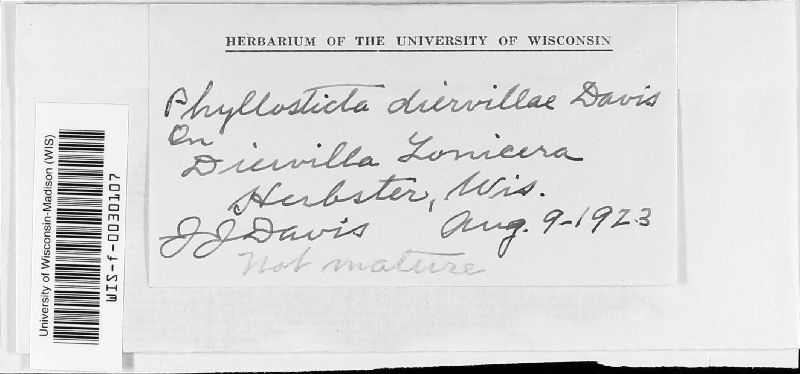 HERBARIUM OF THE UNIVERSITY OF WISCONSIN
Phyllosticta diervillae Davis
On
Diervilla Lonicera
Herbster, Wis.
J J Davis Aug. 9-1923
Not mature
University of Wisconsin-Madison (WIS)
WIS-f-0030107